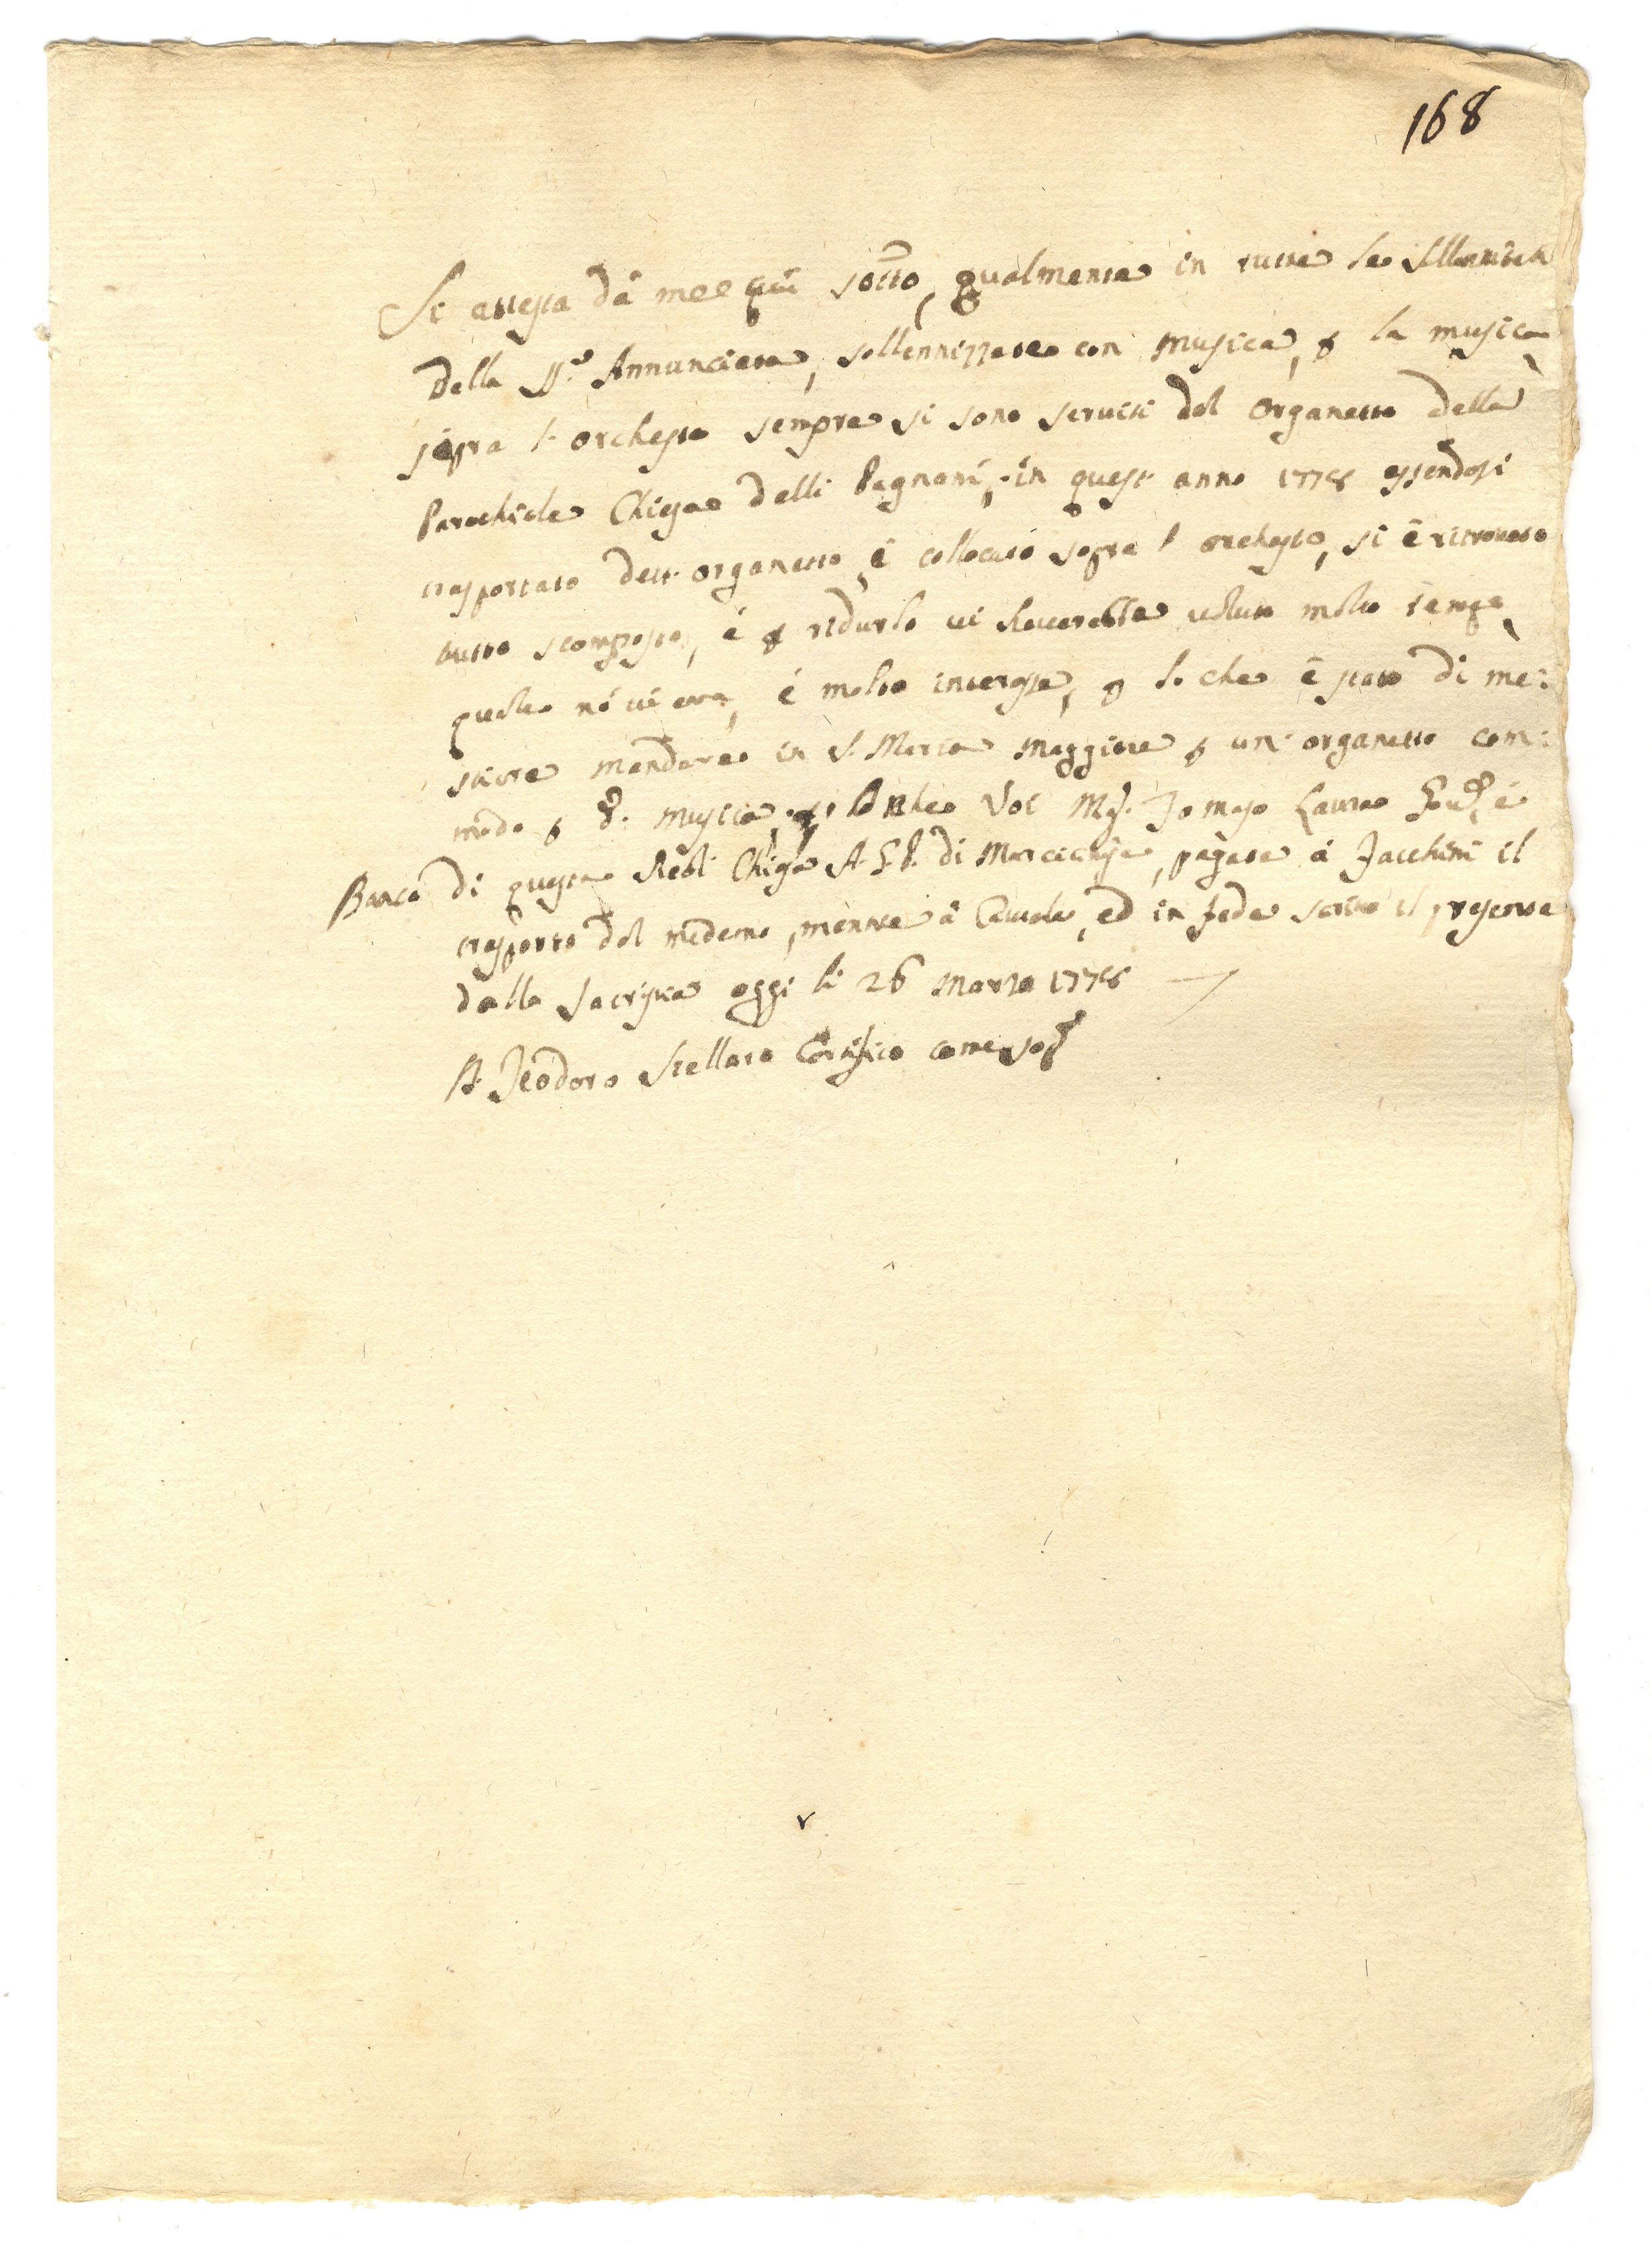 168
Si attesta dà mee quì sotto, qualmente in tutte le sollennità
della SS.ª Annunciata, sollennizzate con musica, p la musica
sopra l'orchesta sempre si sono serviti del organetto della
Parochiale Chiesa delli Pagnani, in quest'anno 1775 essendosi
trasportato dett'organetto, è collocato sopra l'orchesto, si è ritrovato
tutto scomposto, è p ridurlo vi voluto molto tempo
quale nò vi era, è molto interesse, p lo che è stato di me:
stiere mandare in S. Maria Maggiore p un'organetto com:
modo p d. musica, Voi Mg. Tomaso Lauro
Banca di questa Real Chiesa A. G. P. di Marcianise, pagate à Jacchini il
trasporto del medemo, mentre à Cautela, ed in fede scrivo il presente
dalla Sacristia oggi li 26 Marzo 1775
D. Teodoro Stellaro Certifico come sop